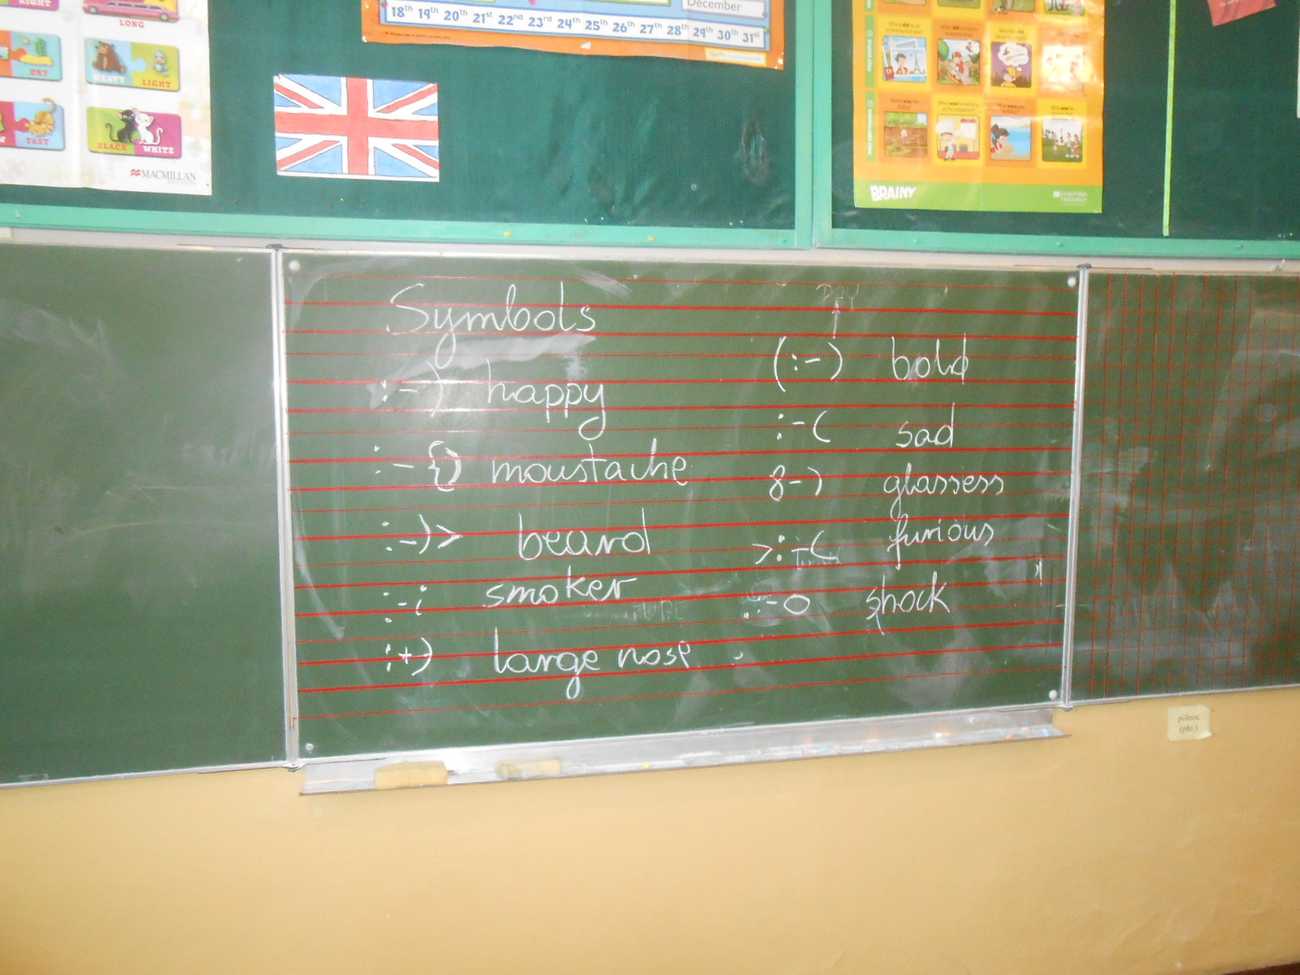 RIGHT
LONG
HEAVY
LIGHT
WET
FAST
BLACK
WHITE
MACMILLAN
December
18th 19th 20th 21st 22nd 23rd 24th 25th 26th 27th 28th 29th 30th 31st
BRAINY
Symbols
:-) happy
:-{) moustache
:-)> beard
:-i smoker
:+) large nose
(:-) bold
:-( sad
8-) glassess
>:-( furious
:-o shock